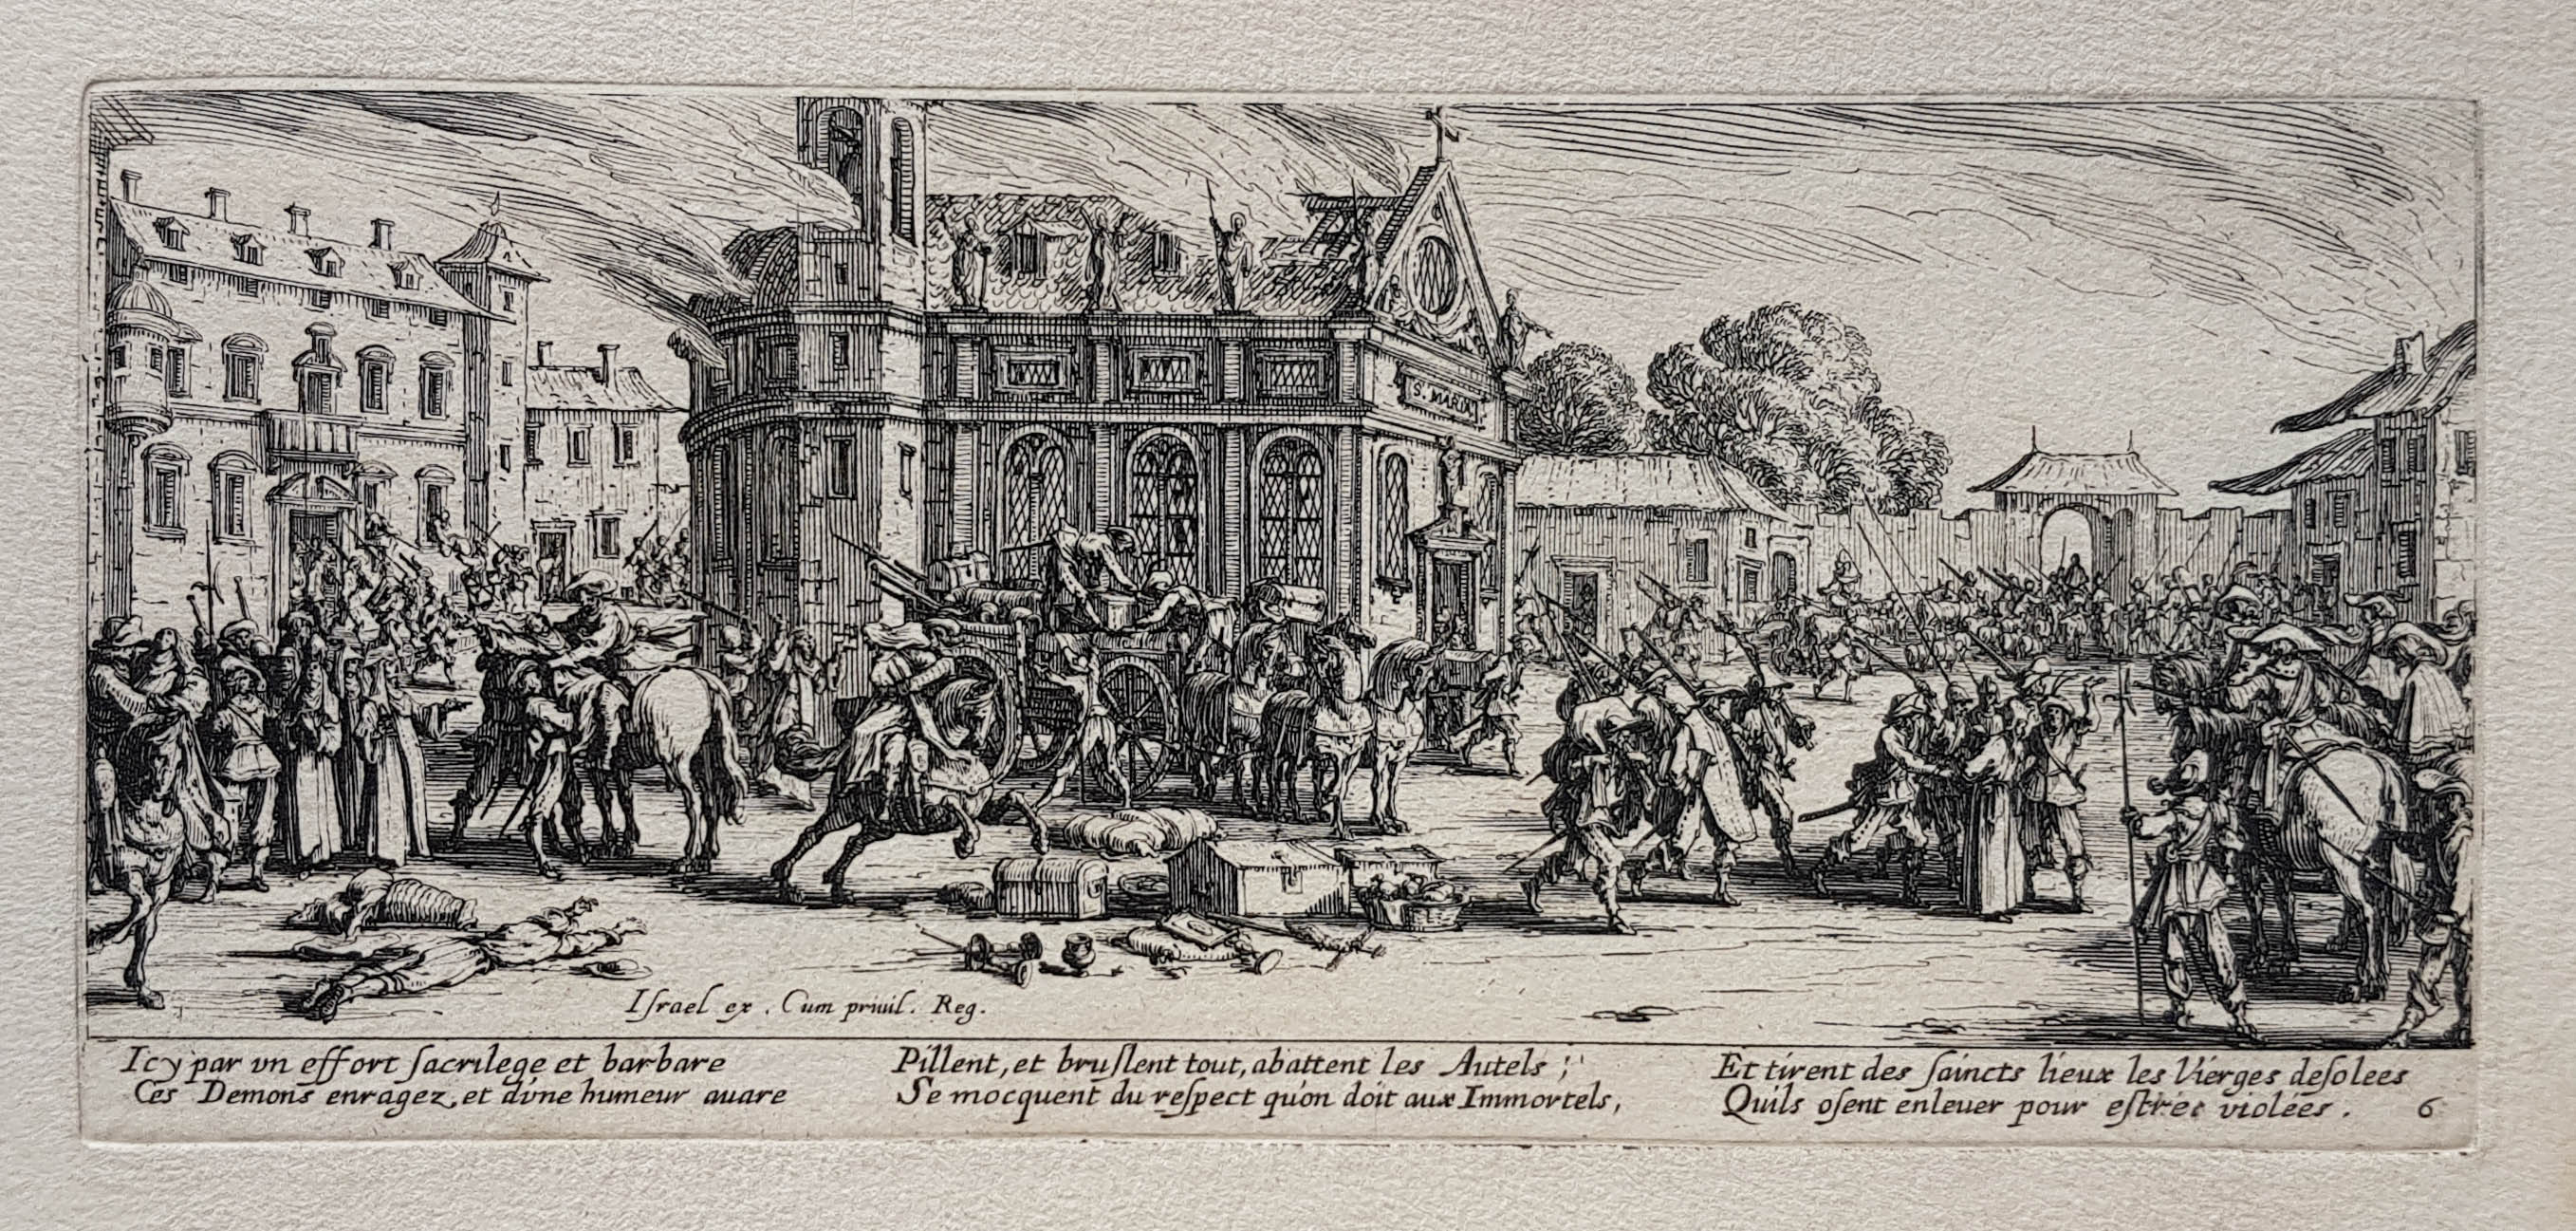 S. MARIA
Israel ex. Cum priuil. Reg.
Icy par vn effort ſacrilege et barbare
Ces Demons enragez, et d'vne humeur auare
Pillent, et bruſlent tout, abattent les Autels ;
Se mocquent du reſpect qu'on doit aux Immortels,
Et tirent des ſaincts lieux les Vierges deſolees
Quils oſent enleuer pour eſtre violées. 6